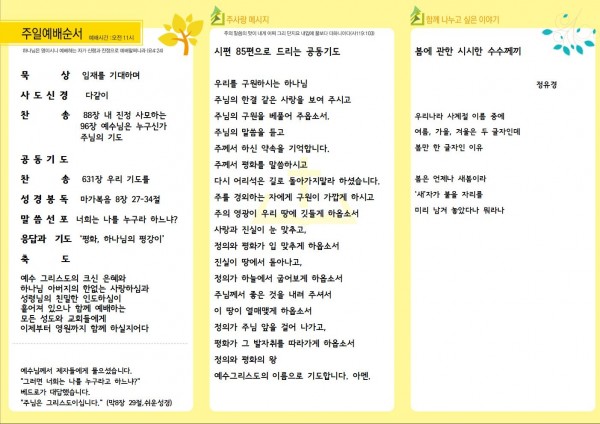 주일예배순서 예배시간 : 오전 11시
하나님은 영이시니 예배하는 자가 신령과 진정으로 예배할찌니라 (요4:24)
묵 상 임재를 기대하며
사도신경 다같이
찬 송 88장 내 진정 사모하는
96장 예수님은 누구신가
주님의 기도
공동기도
찬 송 631장 우리 기도를
성경봉독 마가복음 8장 27-34절
말씀선포 너희는 나를 누구라 하느냐?
응답과 기도 '평화, 하나님의 평강이'
축 도
예수 그리스도의 크신 은혜와
하나님 아버지의 한없는 사랑하심과
성령님의 친밀한 인도하심이
흩어져 있으나 함께 예배하는
모든 성도와 교회들에게
이제부터 영원까지 함께 하실지어다
예수님께서 제자들에게 물으셨습니다.
"그러면 너희는 나를 누구라고 하느냐?"
베드로가 대답했습니다.
"주님은 그리스도이십니다." (막8장 29절,쉬운성경)
주사랑 메시지
주의 말씀의 맛이 내게 어찌 그리 단지요 내입에 꿀보다 더하니이다(시119:103)
시편 85편으로 드리는 공동기도
우리를 구원하시는 하나님
주님의 한결 같은 사랑을 보여 주시고
주님의 구원을 베풀어 주옵소서.
주님의 말씀을 듣고
주께서 하신 약속을 기억합니다.
주께서 평화를 말씀하시고
다시 어리석은 길로 돌아가지말라 하셨습니다.
주를 경외하는 자에게 구원이 가깝게 하시고
주의 영광이 우리 땅에 깃들게 하옵소서
사랑과 진실이 눈 맞추고,
정의와 평화가 입 맞추게 하옵소서
진실이 땅에서 돋아나고,
정의가 하늘에서 굽어보게 하옵소서
주님께서 좋은 것을 내려 주셔서
이 땅이 열매맺게 하옵소서
정의가 주님 앞을 걸어 나가고,
평화가 그 발자취를 따라가게 하옵소서
정의와 평화의 왕
예수그리스도의 이름으로 기도합니다. 아멘.
함께 나누고 싶은 이야기
봄에 관한 시시한 수수께끼
정유경
우리나라 사계절 이름 중에
여름, 가을, 겨울은 두 글자인데
봄만 한 글자인 이유
봄은 언제나 새봄이라
'새'자가 붙을 자리를
미리 남겨 놓았다나 뭐라나